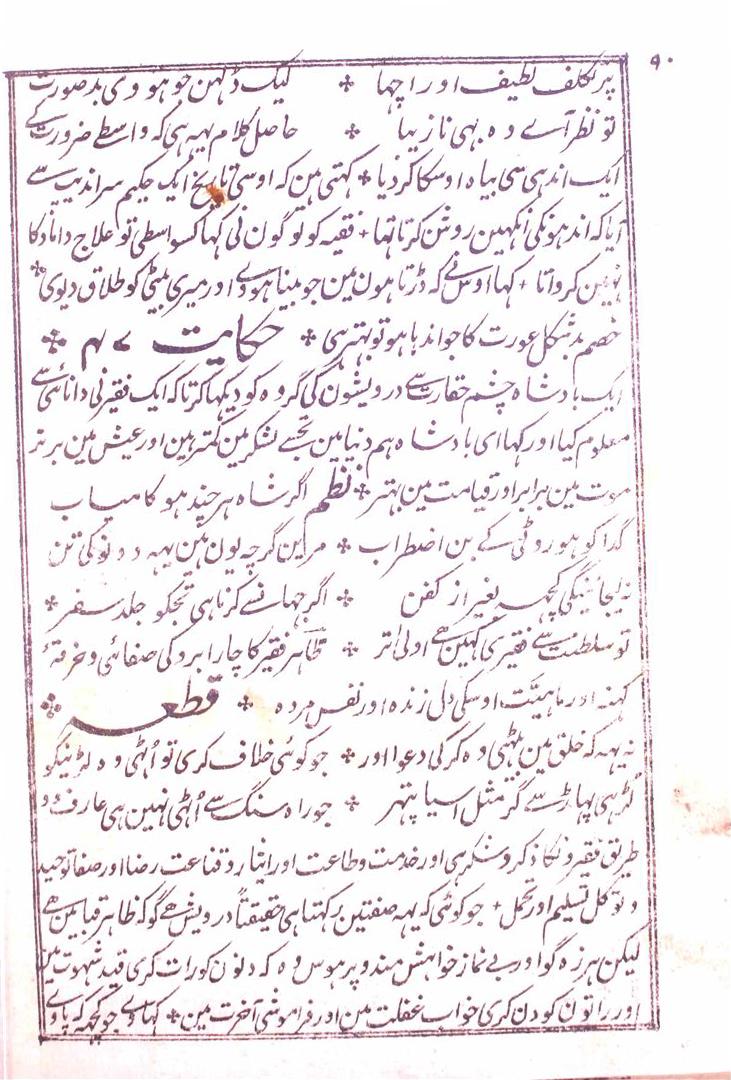 ۹۰
پر تکلف لطیف اور اچھا ❖ لیک دلہن جو ہووی بد صورت
تو نظر آے وہ بہی نازیبا ❖ حاصل کلام یہہ ہی کہ واسطے ضرورت کے
ایک اندہی سی بیاہ اوسکا کر دیا ❖ کہتی ہین کہ اوسی تاریخ ایک حکیم سراندیپ سے
آیا کہ اندہونکی انکہین روشن کرتا تہا ❖ فقیہ کو لوگون نی کہا کسواسطی تو علاج داماد کا
نہین کرواتا ❖ کہا اوس نے کہ ڈرتا ہون مین جو بینا ہووے اور میری بیٹی کو طلاق دیوی ❖
خصم بد شکل عورت کا جو اندہا ہو تو بہتر ہی ❖ حکایت ۴۷ ❖
ایک بادشاہ چشم حقارت سے درویشون کی گروہ کو دیکہا کرتا کہ ایک فقیر نی دانائی سے
معلوم کیا اور کہا ای بادشاہ ہم دنیا مین تجہسے لشکر مین کمتر ہین اور عیش مین برتر
موت مین برابر اور قیامت مین بہتر ❖ نظم اگر شاہ ہر چند ہو کامیاب
گدا کو ہو روٹی کے بن اضطراب ❖ مرین گرچہ یون ہین یہہ دونوکی تن
نہ لیجائینگی کچہہ بغیر از کفن ❖ اگر جہانسے کرنا ہی تجکو جلد سفر ❖
تو سلطنت سے فقیری کہین ھے اولی اتر ❖ ظاہر فقیر کا چار ابرو کی صفائی و خرقۂ
کہنہ اور ماہیئت اوسکی دل زندہ اور نفس مردہ ❖ قطعہ ❖
نہ یہہ کہ خلق مین بیٹھی وہ کر کی دعوا اور ❖ جو کوئی خلاف کری تو اُٹہی وہ لڑنیکو
لڑہی پہاڑ سے گر مثل اسیا پتہر ❖ جو راہ سنگ سے اُٹہی نہین ہی عارف وو
طریق فقیرونکا ذکر و شکر ہی اور خدمت و طاعت اور ایثار و قناعت رضا اور صفا توحید
و توکل تسلیم اور تحمل ❖ جو کوئی کہ یہہ صفتین رکہتا ہی حقیقتاً درویش ھے گو کہ ظاہر قبا مین ھے
لیکن ہرزہ گو اور بے نماز خواہش مند و پر ہوس وہ کہ دنون کو رات کری قید شہوت مین
اور راتون کو دن کری خواب غفلت مین اور فراموشی آخرت مین ❖ کہاوے جو کچہہ کہ پاوے